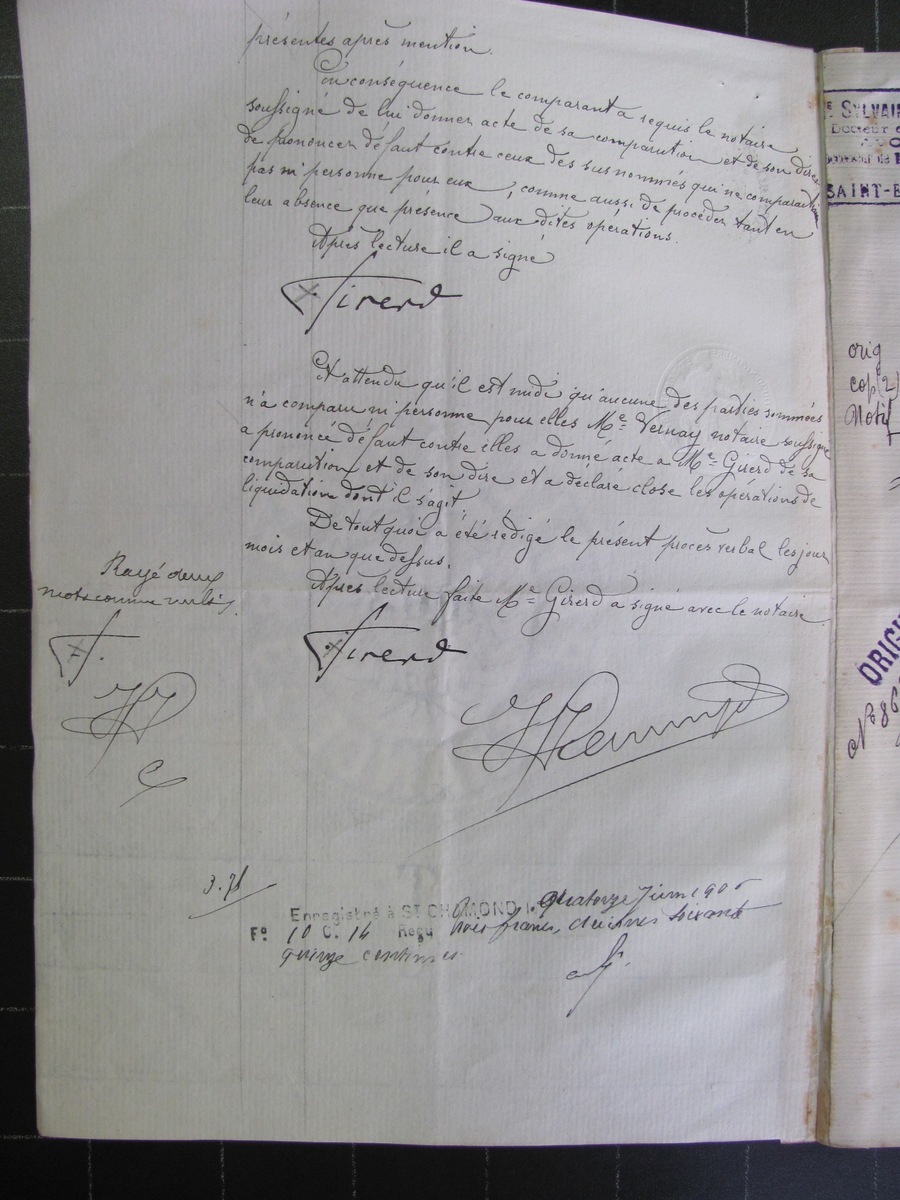 présentes après mention.
En conséquence le comparant a requis le notaire
soussigné de lui donner acte de sa comparution et de son dire
de prononcer défaut contre ceux des susnommés qui ne comparaîtront
pas ni personne pour eux, comme aussi de procéder tant en
leur absence que présence aux dites opérations.
Après lecture il a signé
Girerd
Et attendu qu'il est midi qu'aucune des parties sommées
n'a comparu ni personne pour elles Me Vernay notaire soussigné
a prononcé défaut contre elles a donné acte a Me Girerd de sa
comparution et de son dire et a déclaré close les opérations de
liquidation dont il s'agit.
De tout quoi a été rédigé le présent procès verbal les jour
mois et an que dessus.
Après lecture faite Me Girerd a signé avec le notaire.
Rayé deux
mots comme nuls.
Girerd
3.75
Enregistré à ST CHAMOND le quatorze juin 190
Fo 10 C. 14 Reçu trois francs, décimes soixante
quinze centimes.
E SYLVAIN
Docteur
SAINT-E
orig
cop (2)
Notif
ORIGI
No 86